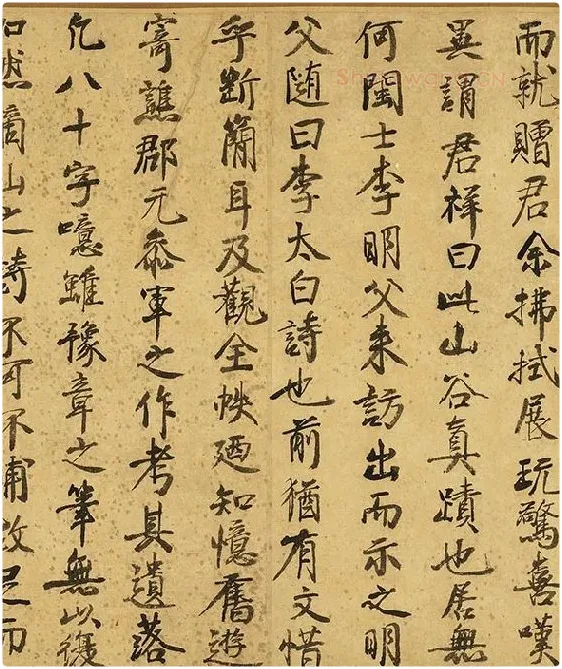 而就贈君余拂拭展玩驚喜嘆
異謂君祥曰此山谷真蹟也居無
何閩士李明父来訪出而示之明
父随曰李太白詩也前猶有文惜
乎断簡耳及觀全帙廼知憶舊遊
寄譙郡元叅軍之作考其遺落
凡八十字噫雖豫章之筆無以復
加然謫仙之詩不可不補故足而